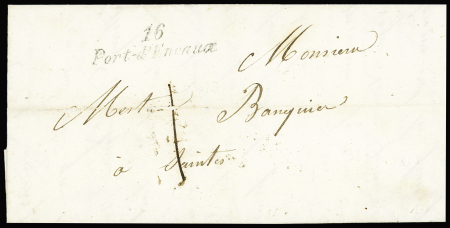 16
Port-d'Envaux
Monsieur
Banquier
à Saintes